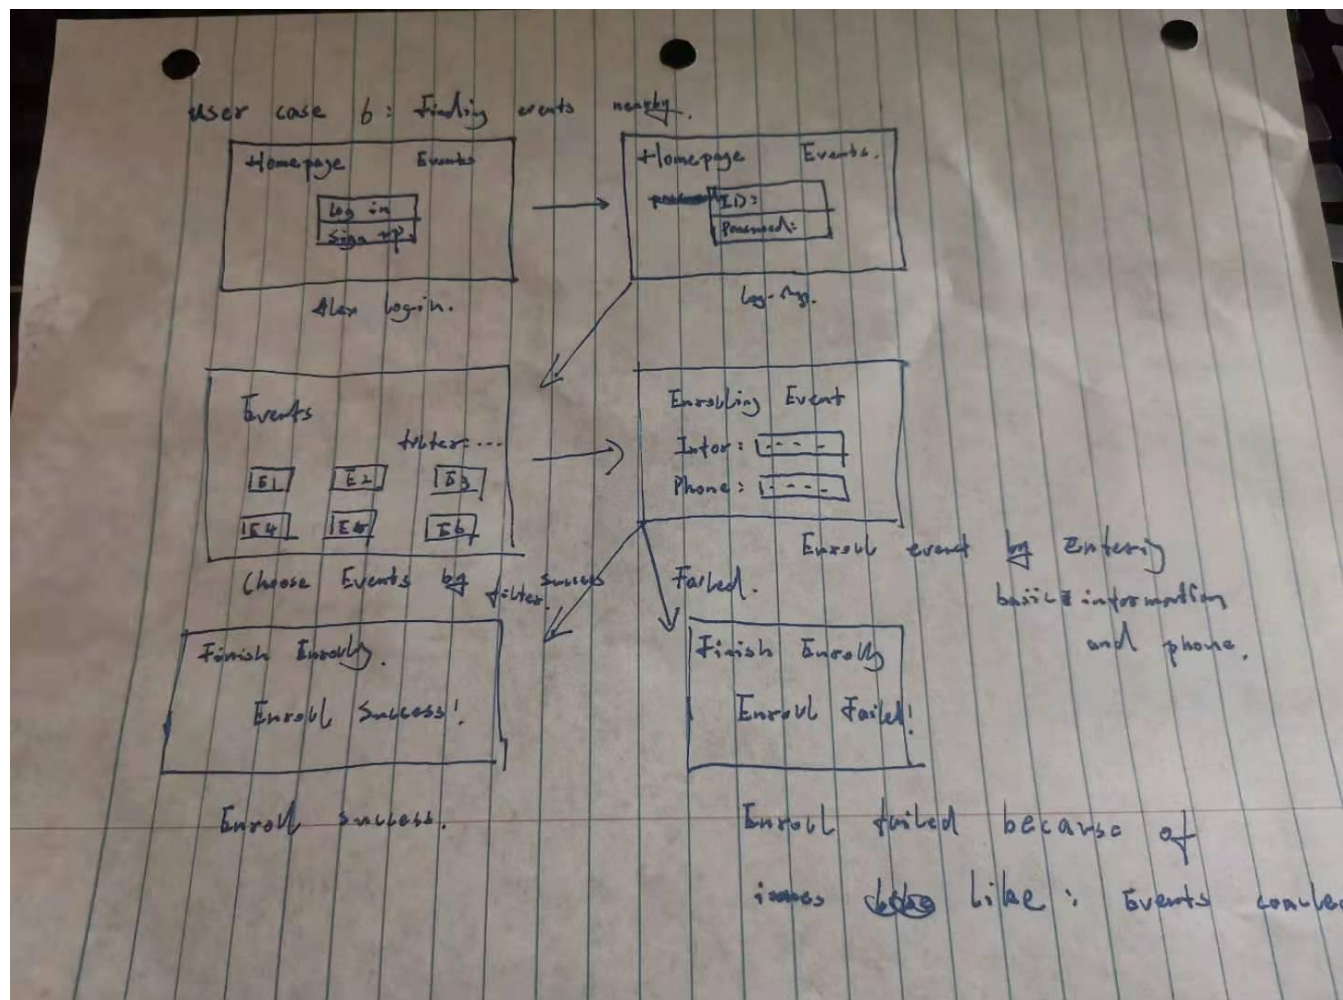 user case 6: Finding events nearby.
Homepage Events
Log in
Sign up.
Alex login.
Homepage Events.
ID:
Password:
Events
filter: ...
E1 E2 E3
E4 E5 E6
Choose Events by filter.
Enrolling Event
Infor:
Phone:
Enroll event by Entering
basic information
and phone.
Success
Failed.
Finish Enrolly.
Enroll Success!
Enroll Success.
Finish Enrolly
Enroll Failed!
Enroll failed because of
issues like: Events